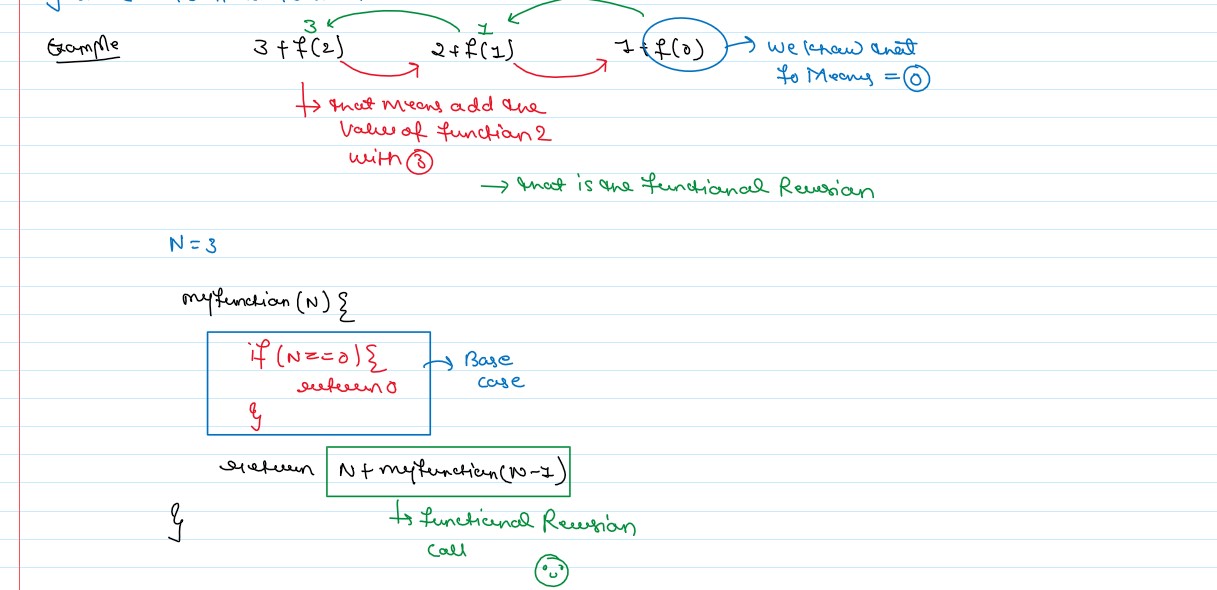 3 1
Example 3 + f(2) 2 + f(1) 1 + f(0) → we know that
fo Means = 0
↳ that means add the
value of function 2
with 3
→ that is the functional Recursion
N = 3
myfunction (N) {
if (N === 0) {
return 0
}
→ Base
case
return N + myfunction (N-1)
}
↳ functional Recursion
call